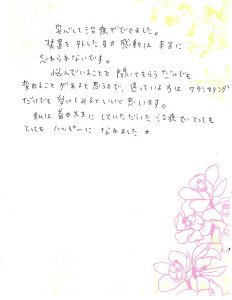 安心して治療ができました。
装置を外した日の感動は本当に
忘れられないです。
悩んでいることを聞いてもらうだけでも
変わることがあると思うので、迷っている方はカウンセリング
だけでも受けてみるといいと思います。
私は首の人生にしていただいた治療でとっても
とってもハッピーになれました